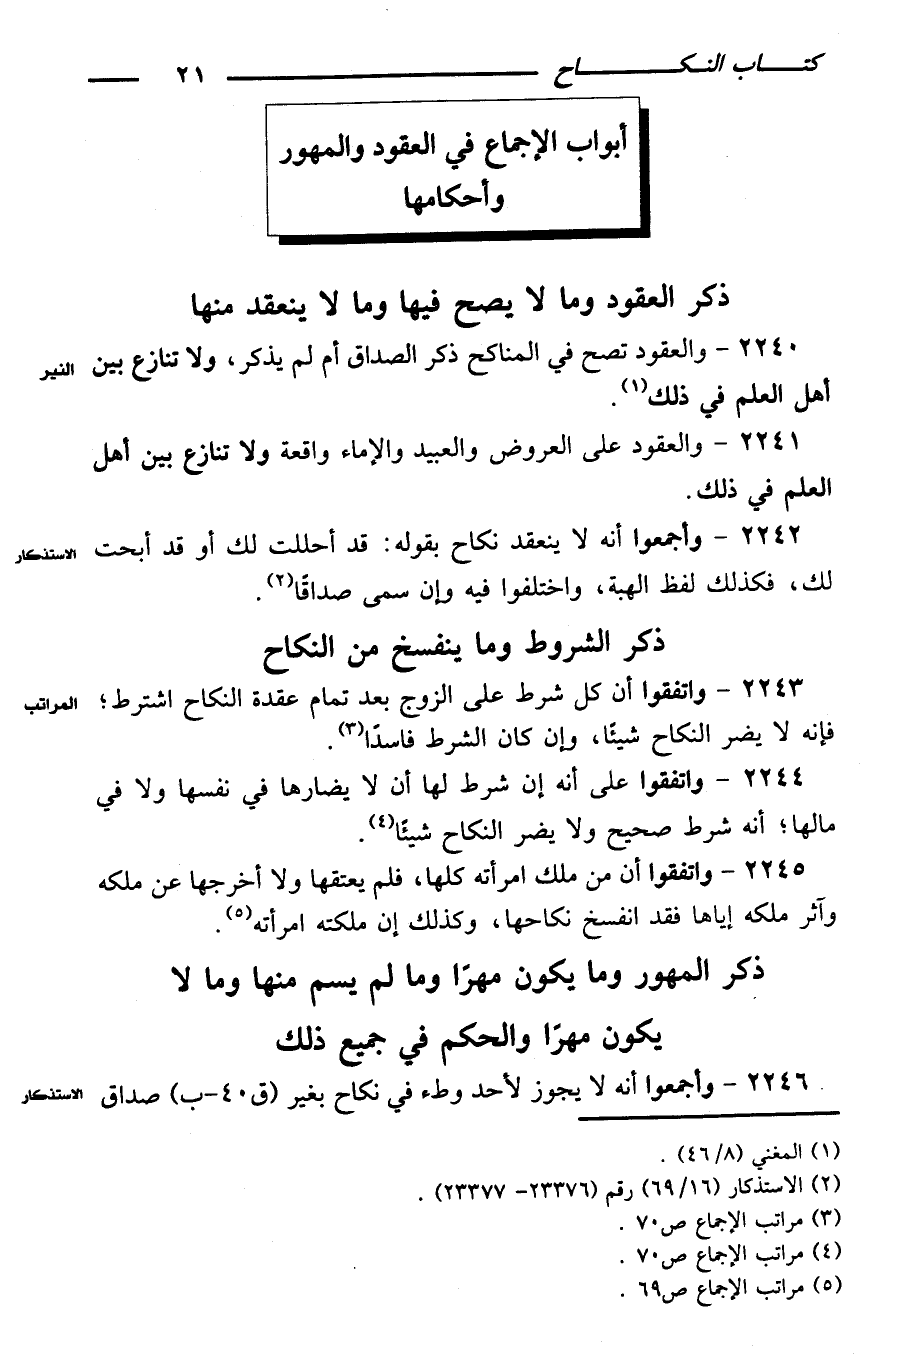 كتـــاب النـكـــــــاح ٢١
أبواب الإجماع في العقود والمهور
وأحكامها
ذكر العقود وما لا يصح فيها وما لا ينعقد منها
٢٢٤٠ - والعقود تصح في المناكح ذكر الصداق أم لم يذكر، ولا تنازع بين النير
أهل العلم في ذلك(١).
٢٢٤١ - والعقود على العروض والعبيد والإماء واقعة ولا تنازع بين أهل
العلم في ذلك.
٢٢٤٢ - وأجمعوا أنه لا ينعقد نكاح بقوله: قد أحللت لك أو قد أبحت الاستذكار
لك، فكذلك لفظ الهبة، واختلفوا فيه وإن سمى صداقًا(٢).
ذكر الشروط وما ينفسخ من النكاح
٢٢٤٣ - واتفقوا أن كل شرط على الزوج بعد تمام عقدة النكاح اشترط؛ المراتب
فإنه لا يضر النكاح شيئًا، وإن كان الشرط فاسدًا(٣).
٢٢٤٤ - واتفقوا على أنه إن شرط لها أن لا يضارها في نفسها ولا في
مالها؛ أنه شرط صحيح ولا يضر النكاح شيئًا(٤).
٢٢٤٥ - واتفقوا أن من ملك امرأته كلها، فلم يعتقها ولا أخرجها عن ملكه
وآثر ملكه إياها فقد انفسخ نكاحها، وكذلك إن ملكته امرأته(٥).
ذكر المهور وما يكون مهرًا وما لم يسم منها وما لا
يكون مهرًا والحكم في جميع ذلك
٢٢٤٦ - وأجمعوا أنه لا يجوز لأحد وطء في نكاح بغير (ق٤٠-ب) صداق الاستذكار
(١) المغني (٤٦/٨) .
(٢) الاستذكار (٦٩/١٦) رقم (٢٣٣٧٦- ٢٣٣٧٧) .
(٣) مراتب الإجماع ص٧٠ .
(٤) مراتب الإجماع ص٧٠ .
(٥) مراتب الإجماع ص٦٩ .